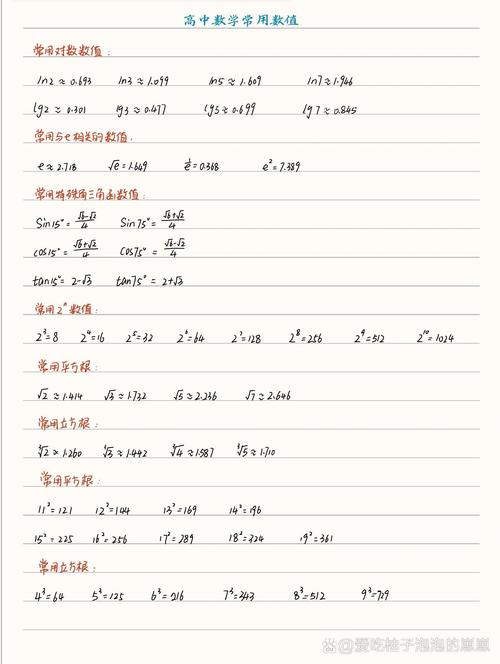 高中数学常用数值
常用对数数值:
ln2≈0.693 ln3≈1.099 ln5≈1.609 ln7≈1.946
lg2≈0.301 lg3≈0.477 lg5≈0.699 lg7≈0.845
常用与e相关的数值.
e≈2.718 √e=1.649 1/e≈0.368 e²=7.389
常用特殊角三角函数值:
Sin15°=(√6-√2)/4 Sin75°=(√6+√2)/4
cos15°=(√6+√2)/4 Cos75°=(√6-√2)/4
tan15°=2-√3 tan75°=2+√3
常用2ⁿ数值:
2³=8 2⁴=16 2⁵=32 2⁶=64 2⁷=128 2⁸=256 2⁹=512 2¹⁰=1024
常用平方根:
√2≈1.414 √3≈1.732 √5≈2.236 √7≈2.646
常用立方根:
³√2≈1.260 ³√3≈1.442 ³√4≈1.587 ³√5≈1.710
常用平方根:
11²=121 12²=144 13²=169 14²=196
15²=225 16²=256 17²=289 18²=324 19²=361
常用立方根:
4³=64 5³=125 6³=216 7³=343 8³=512 9³=729
知乎 @爱吃柚子泡泡的崽崽